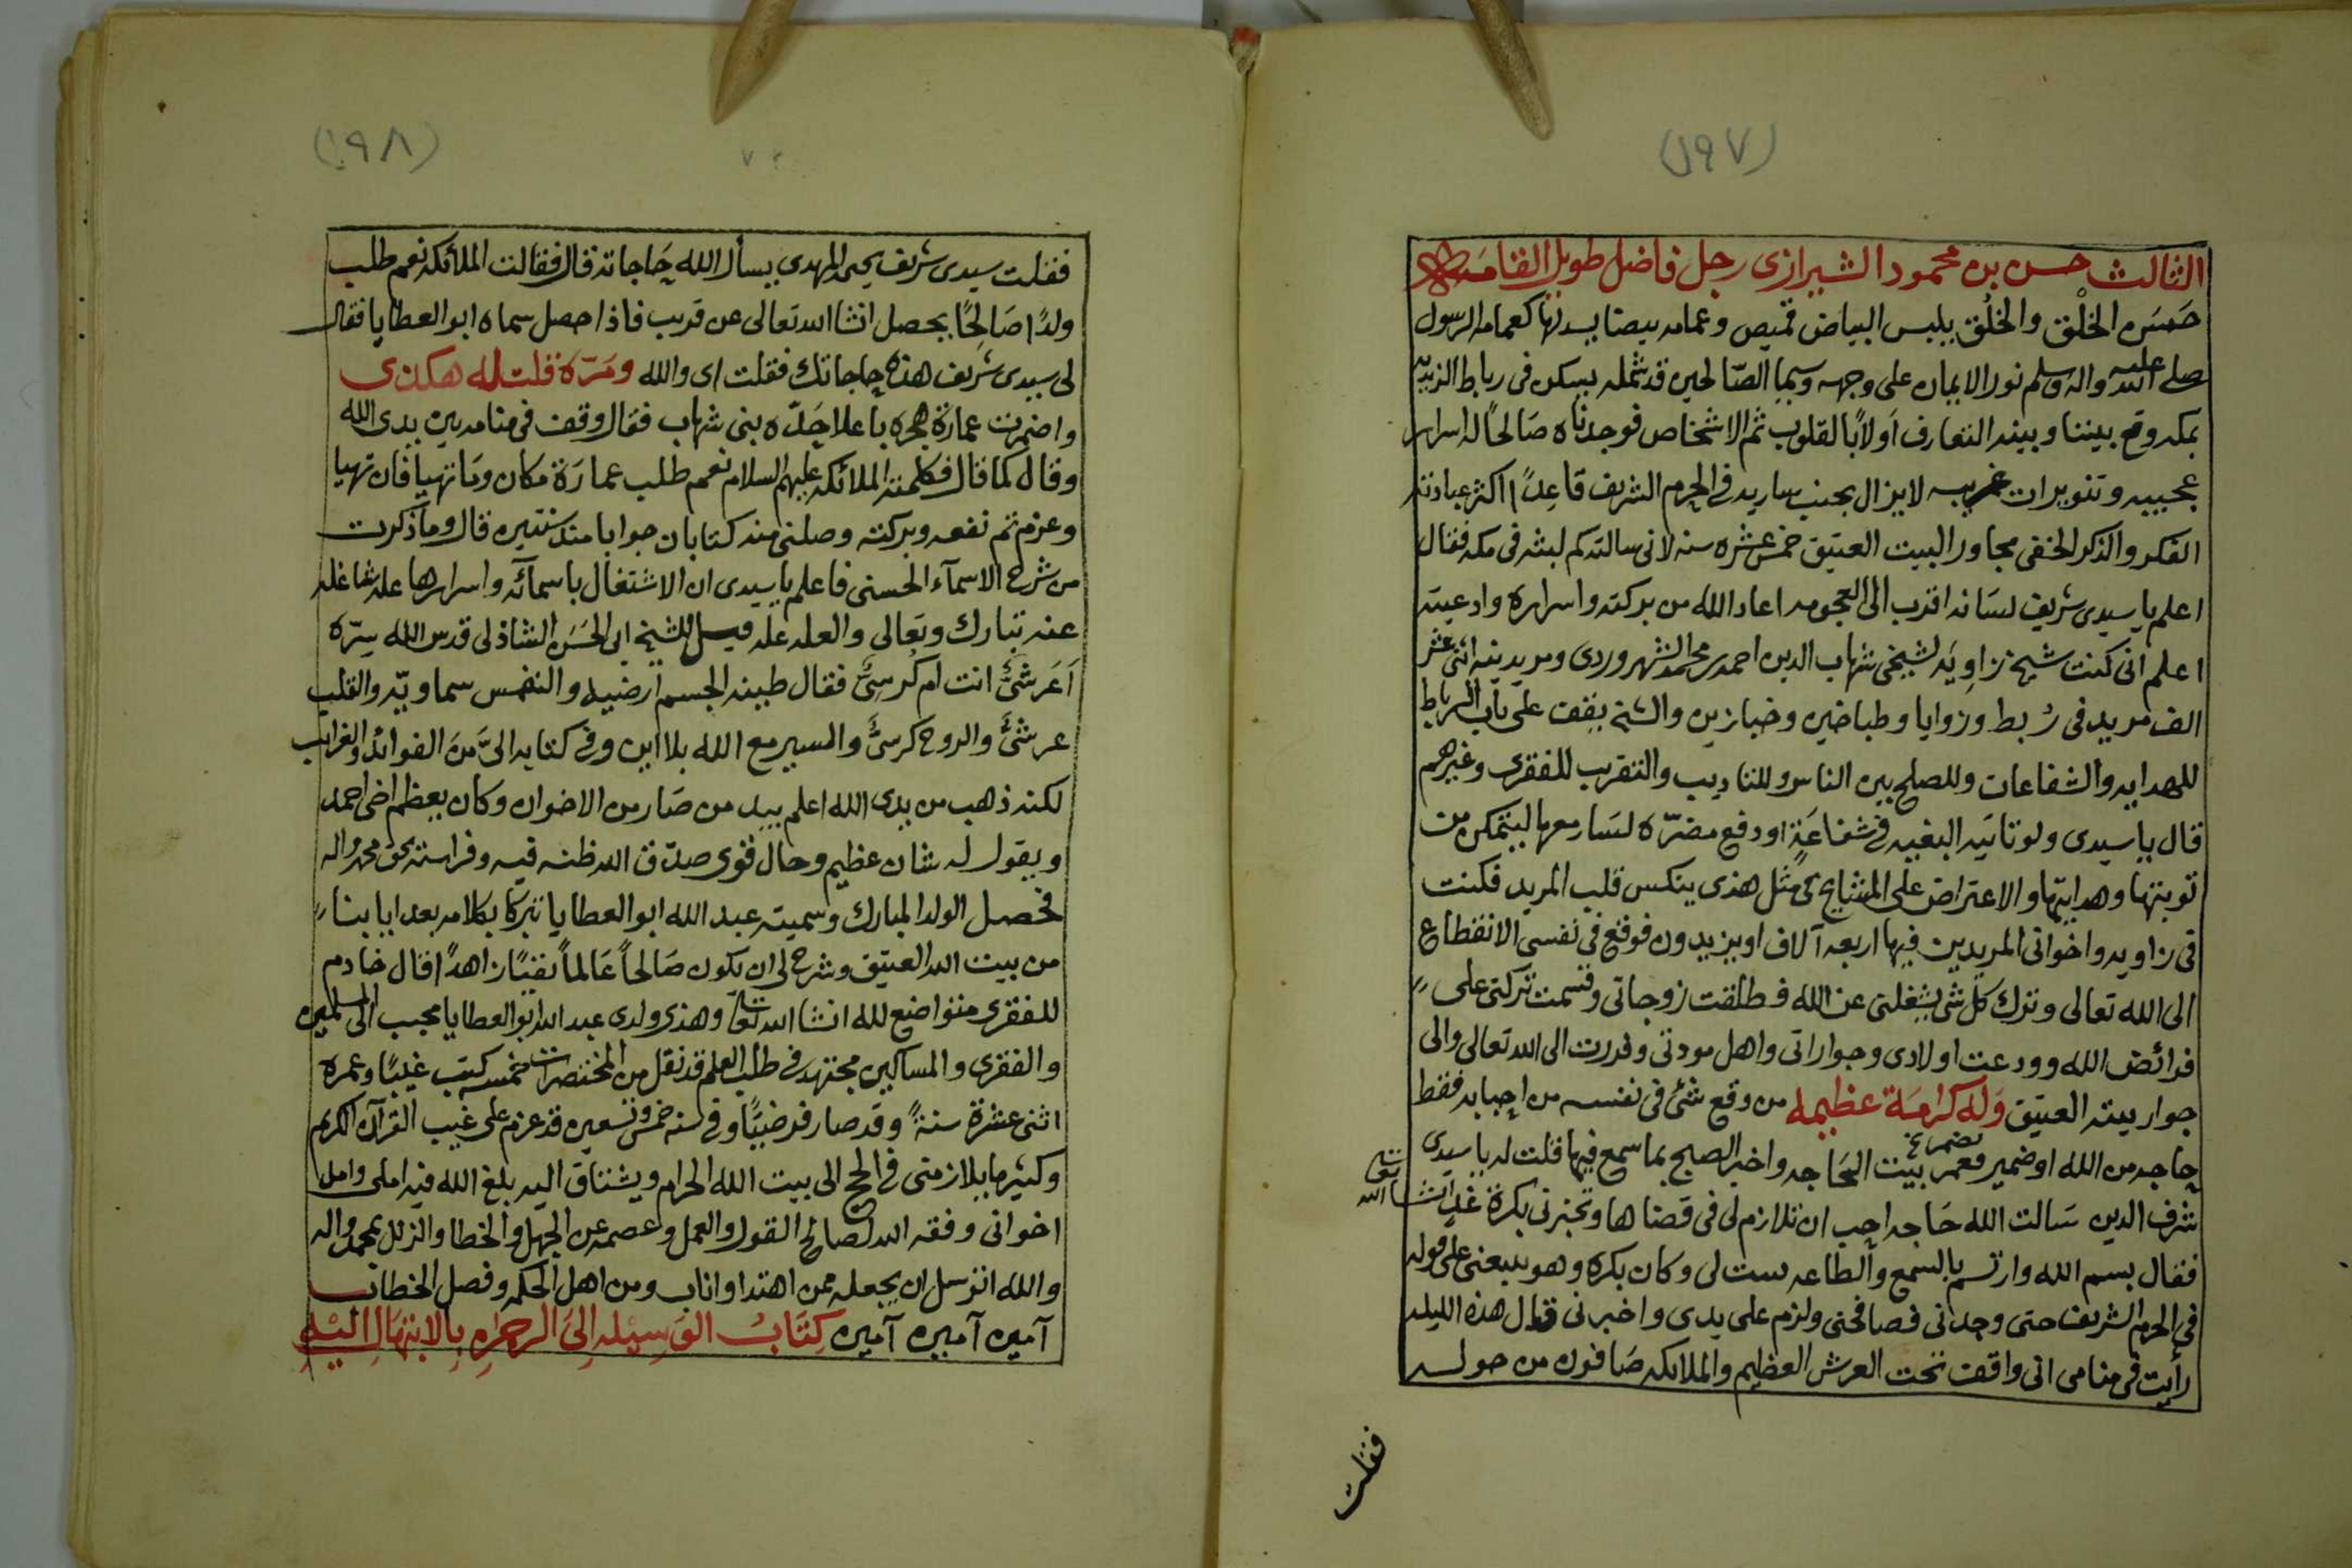 (١٩٧)
الثالث حسن بن محمود الشيرازى رجل فاضل طويل القامه
حَسَن الخلْق والخُلق يلبس البياض قميص وعمامه بيضا يسدنها كعمامة الرسول
صلى الله عليه واله وسلم نور الايمان على وجهه وسيما الصّالحين قد شمله يسكن فى رباط الزيديه
بمكه وقع بيننا وبينه التعارف اَولاً بالقلوب ثم الاشخاص فوجدناه صَالحاً له اسرار
عجيبه وتنويرات غريبه لا يزال بجنب ساريه فى الحرم الشريف قاعِداً اكثر عبادته
الفكر والذكر الخفى مجاور البيت العتيق خمس عشره سنه لانى سالته كم لبثه فى مكه فقال
اعلم يا سيدى شريف لسَانه اقرب الى العجومه اعاد الله من بركته واسراره وادعيته
اعلم انى كنت شيخ زاوِيَه لشيخى شهاب الدين احمد بن محمد الشهروردى ومريدينه اثنى عشر
الف مريد فى رُبط وزوايا وطباخين وخبازين والشيخ يقف على باب الرباط
للهدايه والشفاعات وللصلح بين الناس وللتاديب والتقريب للفقرى وغيرهم
قال يا سيدى ولو تاتيه البغيه فى شفاعَةٍ او دفع مضرّه لسَار معها ليتمكن من
توبتها وهدايتها والاعتراض على المشايخ فى مثل هذى ينكس قلب المريد فكنت
فى زاويه واخوانى المريدين فيها اربعه آلاف او يزيدون فوقع فى نفسى الانقطاع
الى الله تعالى وترك كل شى يشغلنى عن الله فطلقت زوجاتى وقسمت تركتى على
فرائض الله وودعت اولادى وجواراتى واهل مودتى وفررت الى الله تعالى والى
جوار بيته العتيق وَله كرامَة عظيمه من وقع شئ فى نفسه من احبابه فقط
حاجه من الله او ضمير بيت الحَاجه واخبر الصبح بما سمع فيها قلت له يا سيدى
شرف الدين سَالت الله حَاجه احب ان تلازم لى فى قضاها وتخبرنى بكرة غدٍ انشا الله تعالى
فقال بسم الله وارتسم بالسمع والطاعه لى وكان بكره وهو على
فى الحرم الشريف حتى وجدنى فصافحنى ولزم على يدى واخبرنى قال هذه الليله
رأيت فى منامى انى واقف تحت العرش العظيم والملائكه صَافون من حوله
فقلت
(١٩٨)
فقلت سيدى شريف يحى المهدى يسأل الله حَاجاته قال فقالت الملائكه نعم طلب
ولدًا صَالِحًا يحصل انشا الله تعالى عن قريب فاذا حصل سماه ابو العطايا فقال
لى سيدى شريف هذه حاجاتك فقلت اى والله ومَرّة قلت له هكذى
واضمرت عمارة هجره باعلا حَدّه بنى شهاب فقال وقف فى منامه بين يدى الله
وقال كما قال فكلمته الملائكه عليهم السلام نعم طلب عمارَة مكان ومَا تهيا فان تهيا
وعزم تم نفعه وبركته وصلنى منه كتابان جوابا منذ سنتين قال وما ذكرت
من شرح الاسمآء الحسنى فاعلم يا سيدى ان الاشتغال باسمآئه واسرارها عله شاغله
عنه تبارك وتعالى والعله عله قيل للشيخ ابى الحَسَن الشاذلى قدس الله سِرّه
اَعَرشىٌّ انت ام كُرسىٌّ فقال طينه الجسم ارضيه والنفس سماويّه والقلب
عرشىٌّ والروح كرسىٌّ والسير مع الله بلا اين وفى كتابه الىَّ مِنَ الفوائد والغرايب
لكنه ذهب من يدى الله اعلم بيد من صَار من الاخوان وكان يعظم اخى احمد
ويقول له شان عظيم وحال قوى صدّق الله ظنه فيه وفراسته بحق محمد واله
فحصل الولد المبارك وسميته عبد الله ابو العطايا تبركا بكلامه بعد ايابنا
من بيت الله العتيق وشرح لى ان يكون صَالحاً عَالماً تقيًا زاهدًا قال خادم
للفقرى متواضع لله انشا الله تعالى وهذى ولدى عبد الله ابو العطايا محبب الى المسلمين
والفقرى والمساكين مجتهد فى طلب العلم قد نقل من المختصرات خمسه كتب غيبًا وعمره
اثنى عشرة سنةً وقد صار فرضيًا وفى سنه خمس وتسعين قد عزم على غيب القرآن الكريم
وكثير ما يلازمنى فى الحج الى بيت الله الحرام ويشتاق اليه بلغ الله فيه املى وامل
اخوانى وفقه الله لصالح القول والعمل وعصمه عن الجهل والخطا والزلل بمحمد واله
والله اتوسل ان يجعله ممن اهتدا واناب ومن اهل الحكمه وفصل الخطاب
آمين آمين آمين كِتَابُ الوَسِيْله اِلىَ الرحمٰن بِالابتهَال اِليْهِ